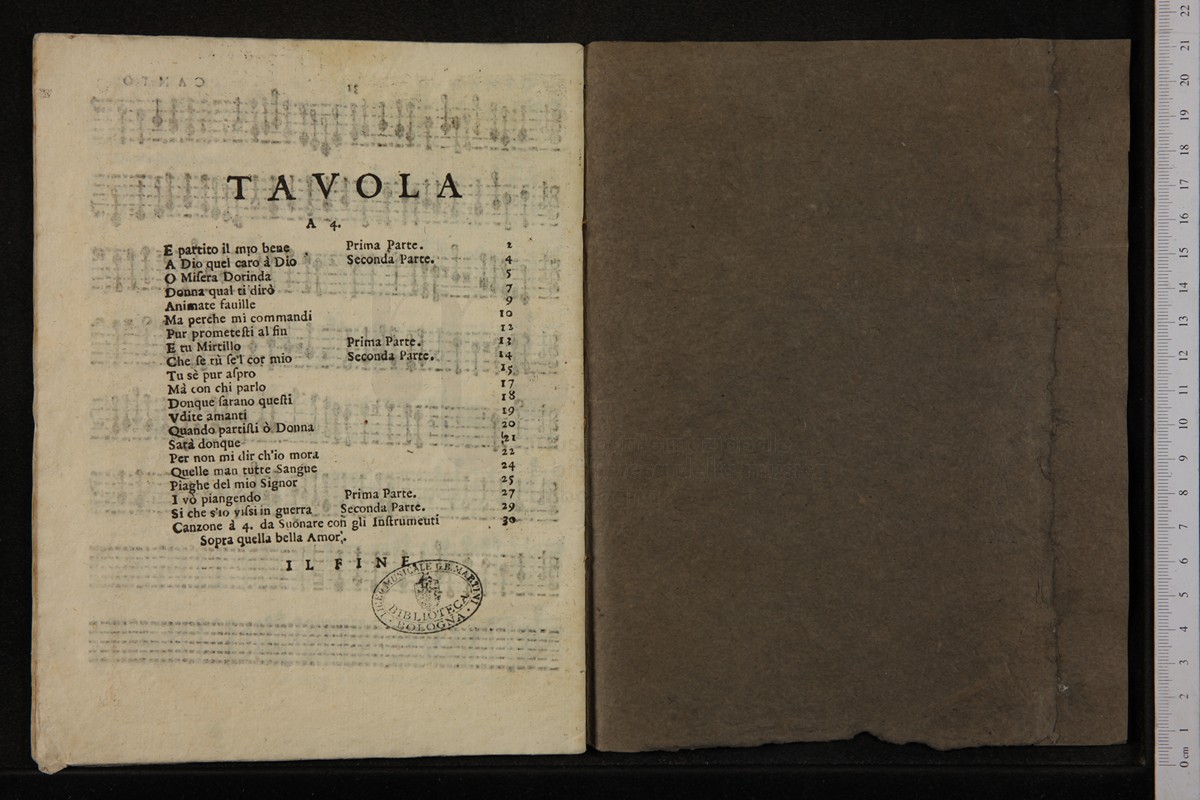 TAVOLA
A 4.
E partito il mio bene Prima Parte. 2
A Dio quel caro à Dio Seconda Parte. 4
O Miſera Dorinda 5
Donna qual ti dirò 7
Animate fauille 9
Ma perche mi commandi 10
Pur prometeſti al fin 12
E tu Mirtillo Prima Parte. 13
Che ſe tù ſe'l cor mio Seconda Parte. 14
Tu sè pur aſpro 15
Mà con chi parlo 17
Donque ſarano queſti 18
Vdite amanti 19
Quando partiſti ò Donna 20
Sarà donque 21
Per non mi dir ch'io mora 22
Quelle man tutte Sangue 24
Piaghe del mio Signor 25
I vò piangendo Prima Parte. 27
Si che s'io viſsi in guerra Seconda Parte. 29
Canzone à 4. da Suonare con gli Inſtrumeuti 30
Sopra quella bella Amor.
IL FINE.
LICEO MUSICALE G.B. MARTINI
BIBLIOTECA
BOLOGNA
CANTO
31
0 cm 1 2 3 4 5 6 7 8 9 10 11 12 13 14 15 16 17 18 19 20 21 22